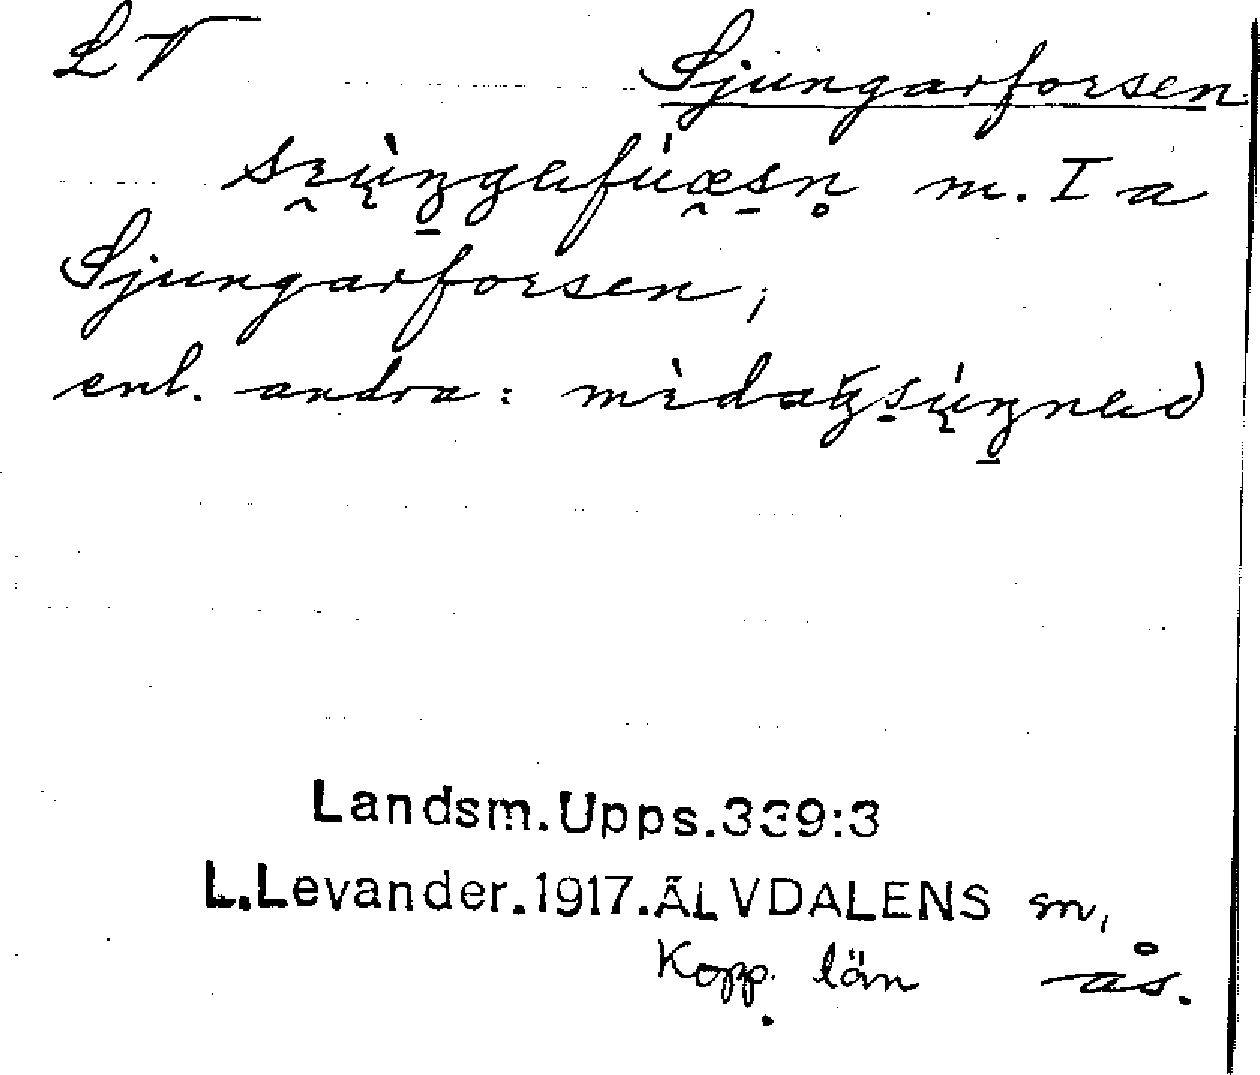 LV
Sjungarforsen
m. I a
Sjungarforsen,
enl. andra:
Landsm.Upps.339:3
L.Levander.1917.ÄLVDALENS sn,
Kopp. län ås.